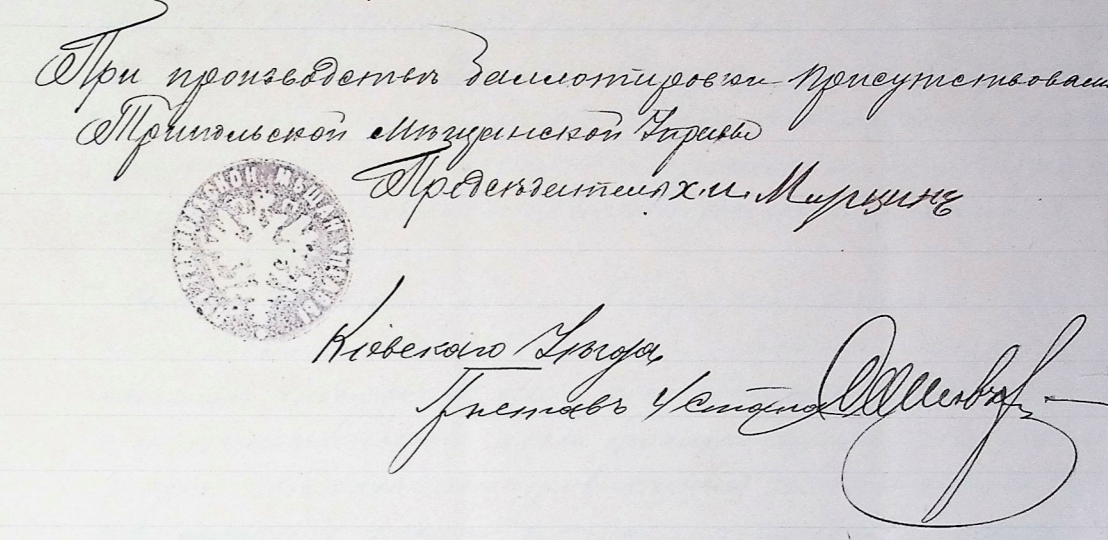 При производствѣ баллотировки присутствовали
Трипольской Мѣщанской Управы
Предсѣдатель
Кіевскаго Уѣзда
Приставъ 4 стана